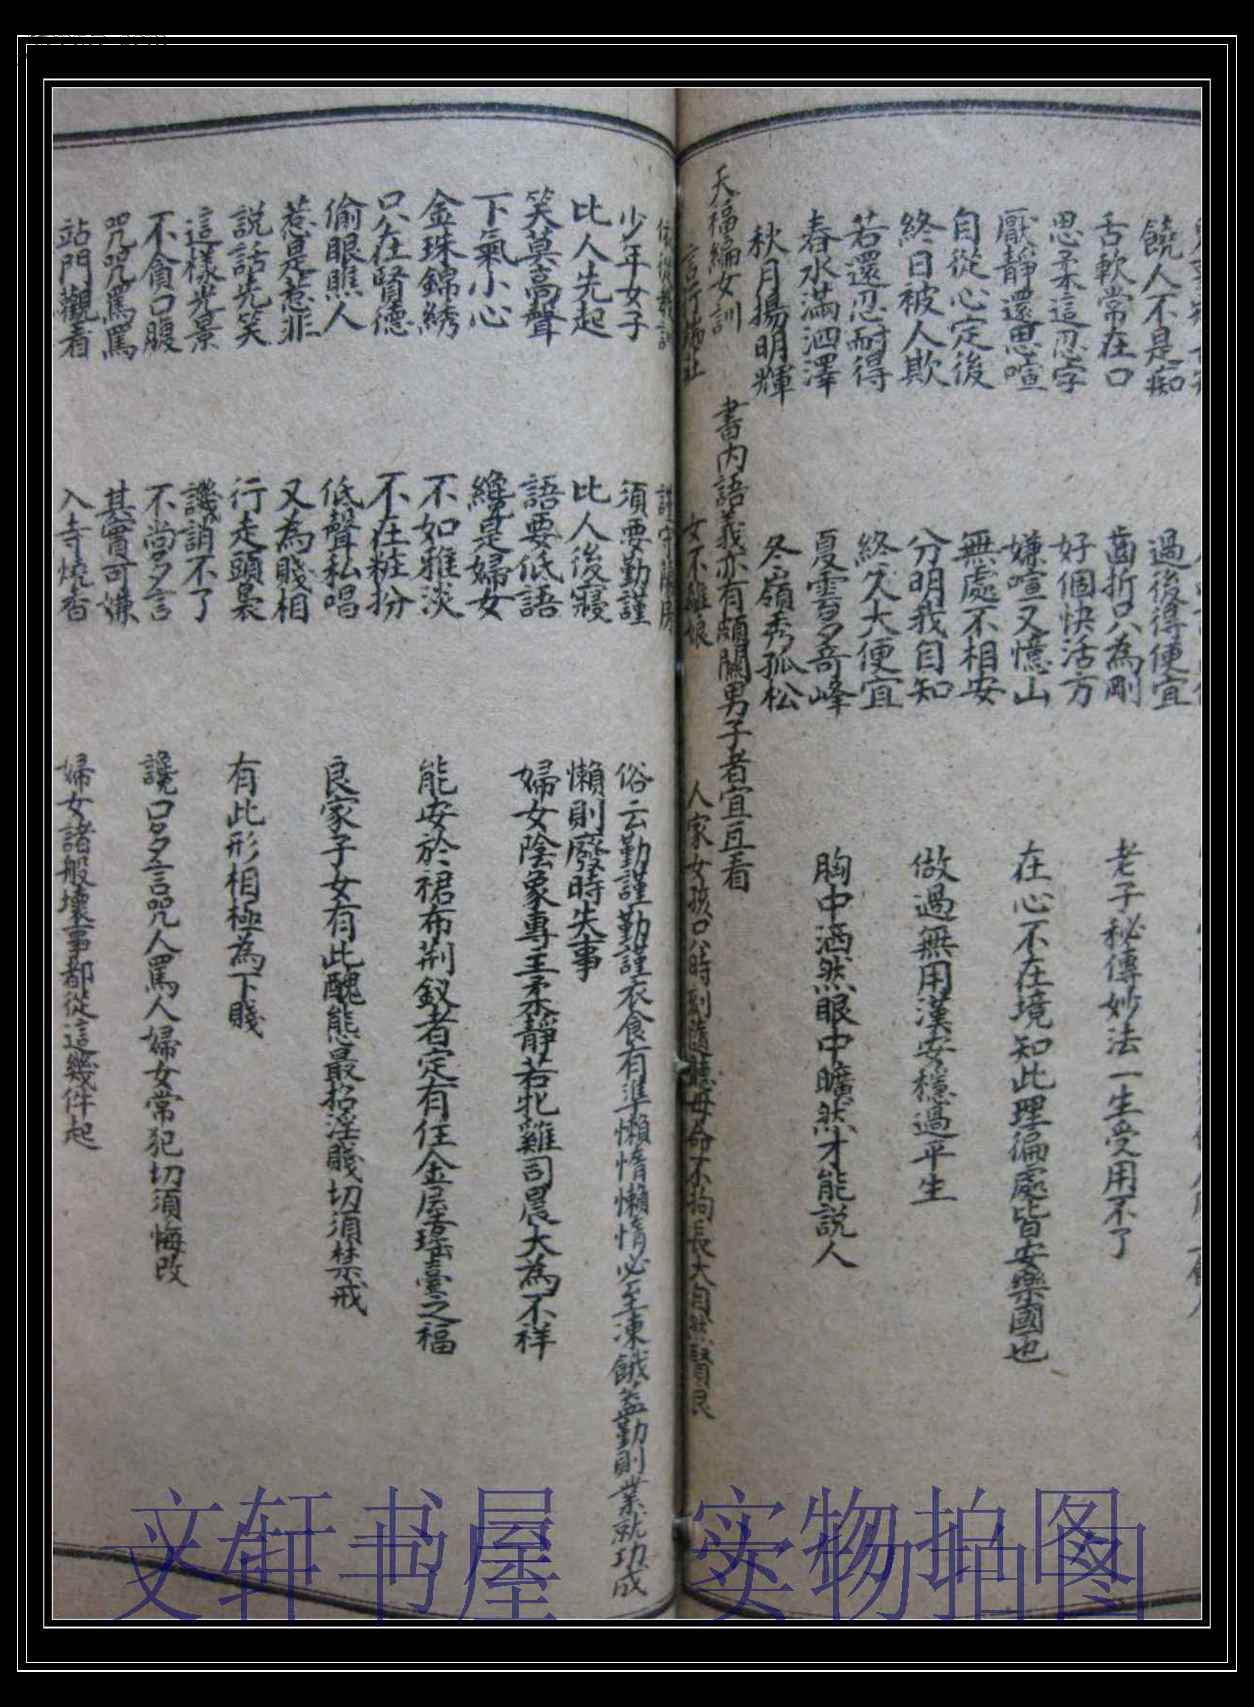 饒人不是痴 過後得便宜
舌軟常在口 齒折只為剛 老子秘傳妙法一生受用不了
思柔這忍字 好個快活方
厭靜還思喧 嫌喧又憶山 在心不在境知此理徧處皆安樂國也
自從心定後 無處不相安
終日被人欺 分明我自知 做過無用漢安穩過平生
若還忍耐得 終久大便宜
春水滿泗澤 夏雲多奇峰 胸中洒然眼中曠然才能說人
秋月揚明輝 冬嶺秀孤松
天福編女訓 書內語義亦有頗關男子者宜互看
女不離娘 人家女孩只八時刻隨聽母命不拘長大自然賢良
少年女子 須要勤謹 俗云勤謹勤謹衣食有準懶惰懶惰必至凍餓蓋勤則業就功成
比人先起 比人後寢 懶則廢時失事
笑莫高聲 語要低語 婦女陰象專主柔靜若牝雞司晨大為不祥
下氣小心 纔是婦女
金珠錦綉 不如雅淡 能安於裙布荆釵者定有住金屋瑤臺之福
只在賢德 不在粧扮
偷眼瞧人 低聲私唱 良家子女有此醜態最招淫賤切須禁戒
惹是惹非 又為賤相
說話先笑 行走頭裊 有此形相極為下賤
這樣光景 譏誚不了
不貪口腹 不尚多言 讒口多言咒人罵人婦女常犯切須悔改
咒咒罵罵 其實可嫌
站門觀看 入寺燒香 婦女諸般壞事都從這幾件起
文轩书屋 实物拍图